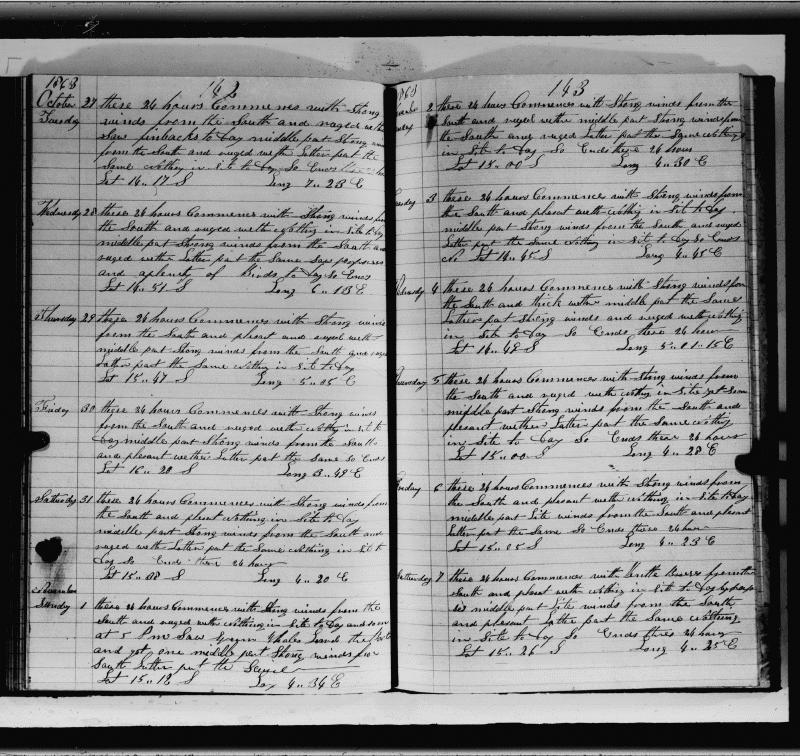 1863
142
October 27 these 24 hours Commences with Strong
Tuesday winds from the South and ruged weth
Saw finbacks to Day middle part Strong
from the South and ruged weth Latter part the
Same Nothing in Site to Day So Ends
Lat 14 " 17 S Long 7 " 23 E
Wednesday 28 these 24 hours Commences with Strong winds from
the South and ruged weth Nothing in Site to Day
middle part Strong winds from the South and
ruged wether Latter part the Same Saw porpoises
and a plenty of Birds to Day So Ends
Lat 14 " 51 S Long 6 " 13 E
Thursday 29 these 24 hours Commences with Strong winds
from the South and plesant and ruged weth
middle part Strong winds from the South and ruged
Latter part the Same Nothing in Site to Day
Lat 15 " 47 S Long 5 " 05 E
Friday 30 these 24 hours Commences with Strong winds
from the South and ruged weth Nothing in Site to
Day middle part Strong winds from the South
and plesant wether Latter part the Same So Ends
Lat 16 " 20 S Long 3 " 49 E
Saturday 31 these 24 hours Commences with Strong winds from
the South and plesant Nothing in Site to Day
middle part Strong winds from the South and
ruged weth Latter part the Same Nothing in Site to
Day So Ends these 24 hours
Lat 15 " 08 S Long 4 " 20 E
November
Sunday 1 these 24 hours Commences with Strong winds from the
South and ruged weth Nothing in Site to Day
at 5 Pm Saw Sperm Whales Lowed the Boats
and got one middle part Strong winds from
South Latter part the Same
Lat 15 " 18 S Log 4 " 34 E
1863
143
2 these 24 hours Commences with Strong winds from the
South and ruged wether middle part Strong winds from
the South and ruged Latter part the Same Nothing
in Site to Day So Ends these 24 hours
Lat 15 " 00 S Long 4 " 30 E
3 these 24 hours Commences with Strong winds from
the South and plesant weth Nothing in Site to Day
middle part Strong winds from the South and ruged
Latter part the Same Nothing in Site to Day So Ends
Lat 14 " 45 S Long 4 " 45 E
4 these 24 hours Commences with Strong winds from
the South and thick wether middle part the Same
Latter part Strong winds and ruged weth Nothing
in Site to Day So Ends these 24 hours
Lat 14 " 49 S Long 5 " 01 " 15 E
5 these 24 hours Commences with Strong winds from
the South and ruged weth Nothing in Site
middle part Strong winds from the South and
plesant wether Latter part the Same Nothing
in Site to Day So Ends these 24 hours
Lat 15 " 00 S Long 4 " 28 E
Friday 6 these 24 hours Commences with Strong winds from
the South and plesant weth Nothing in Site to Day
middle part Lite winds from the South and plesant
Latter part the Same So Ends these 24 hours
Lat 15 " 05 S Long 4 " 23 E
Saturday 7 these 24 hours Commences with Gentle Breeses from the
South and plesant weth Nothing in Site to Day
middle part Lite winds from the South
and plesant Latter part the Same Nothing
in Site to Day So Ends these 24 hours
Lat 15 " 26 S Long 4 " 25 E